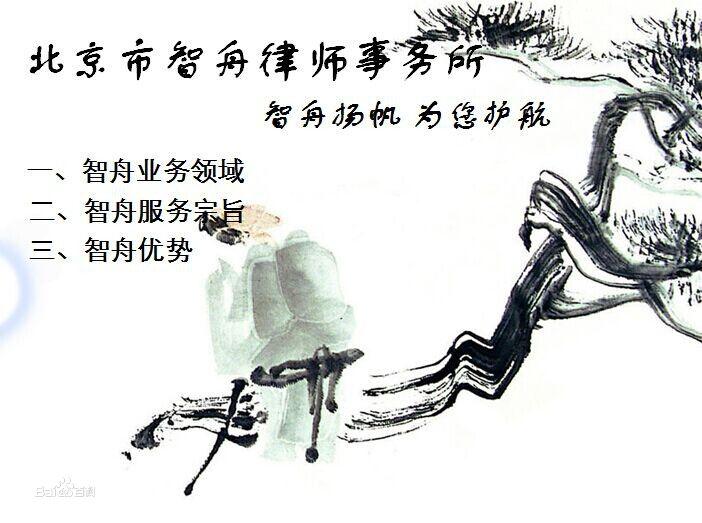 北京市智舟律师事务所
智舟扬帆 为您护航
一、智舟业务领域
二、智舟服务宗旨
三、智舟优势
Baidu百科